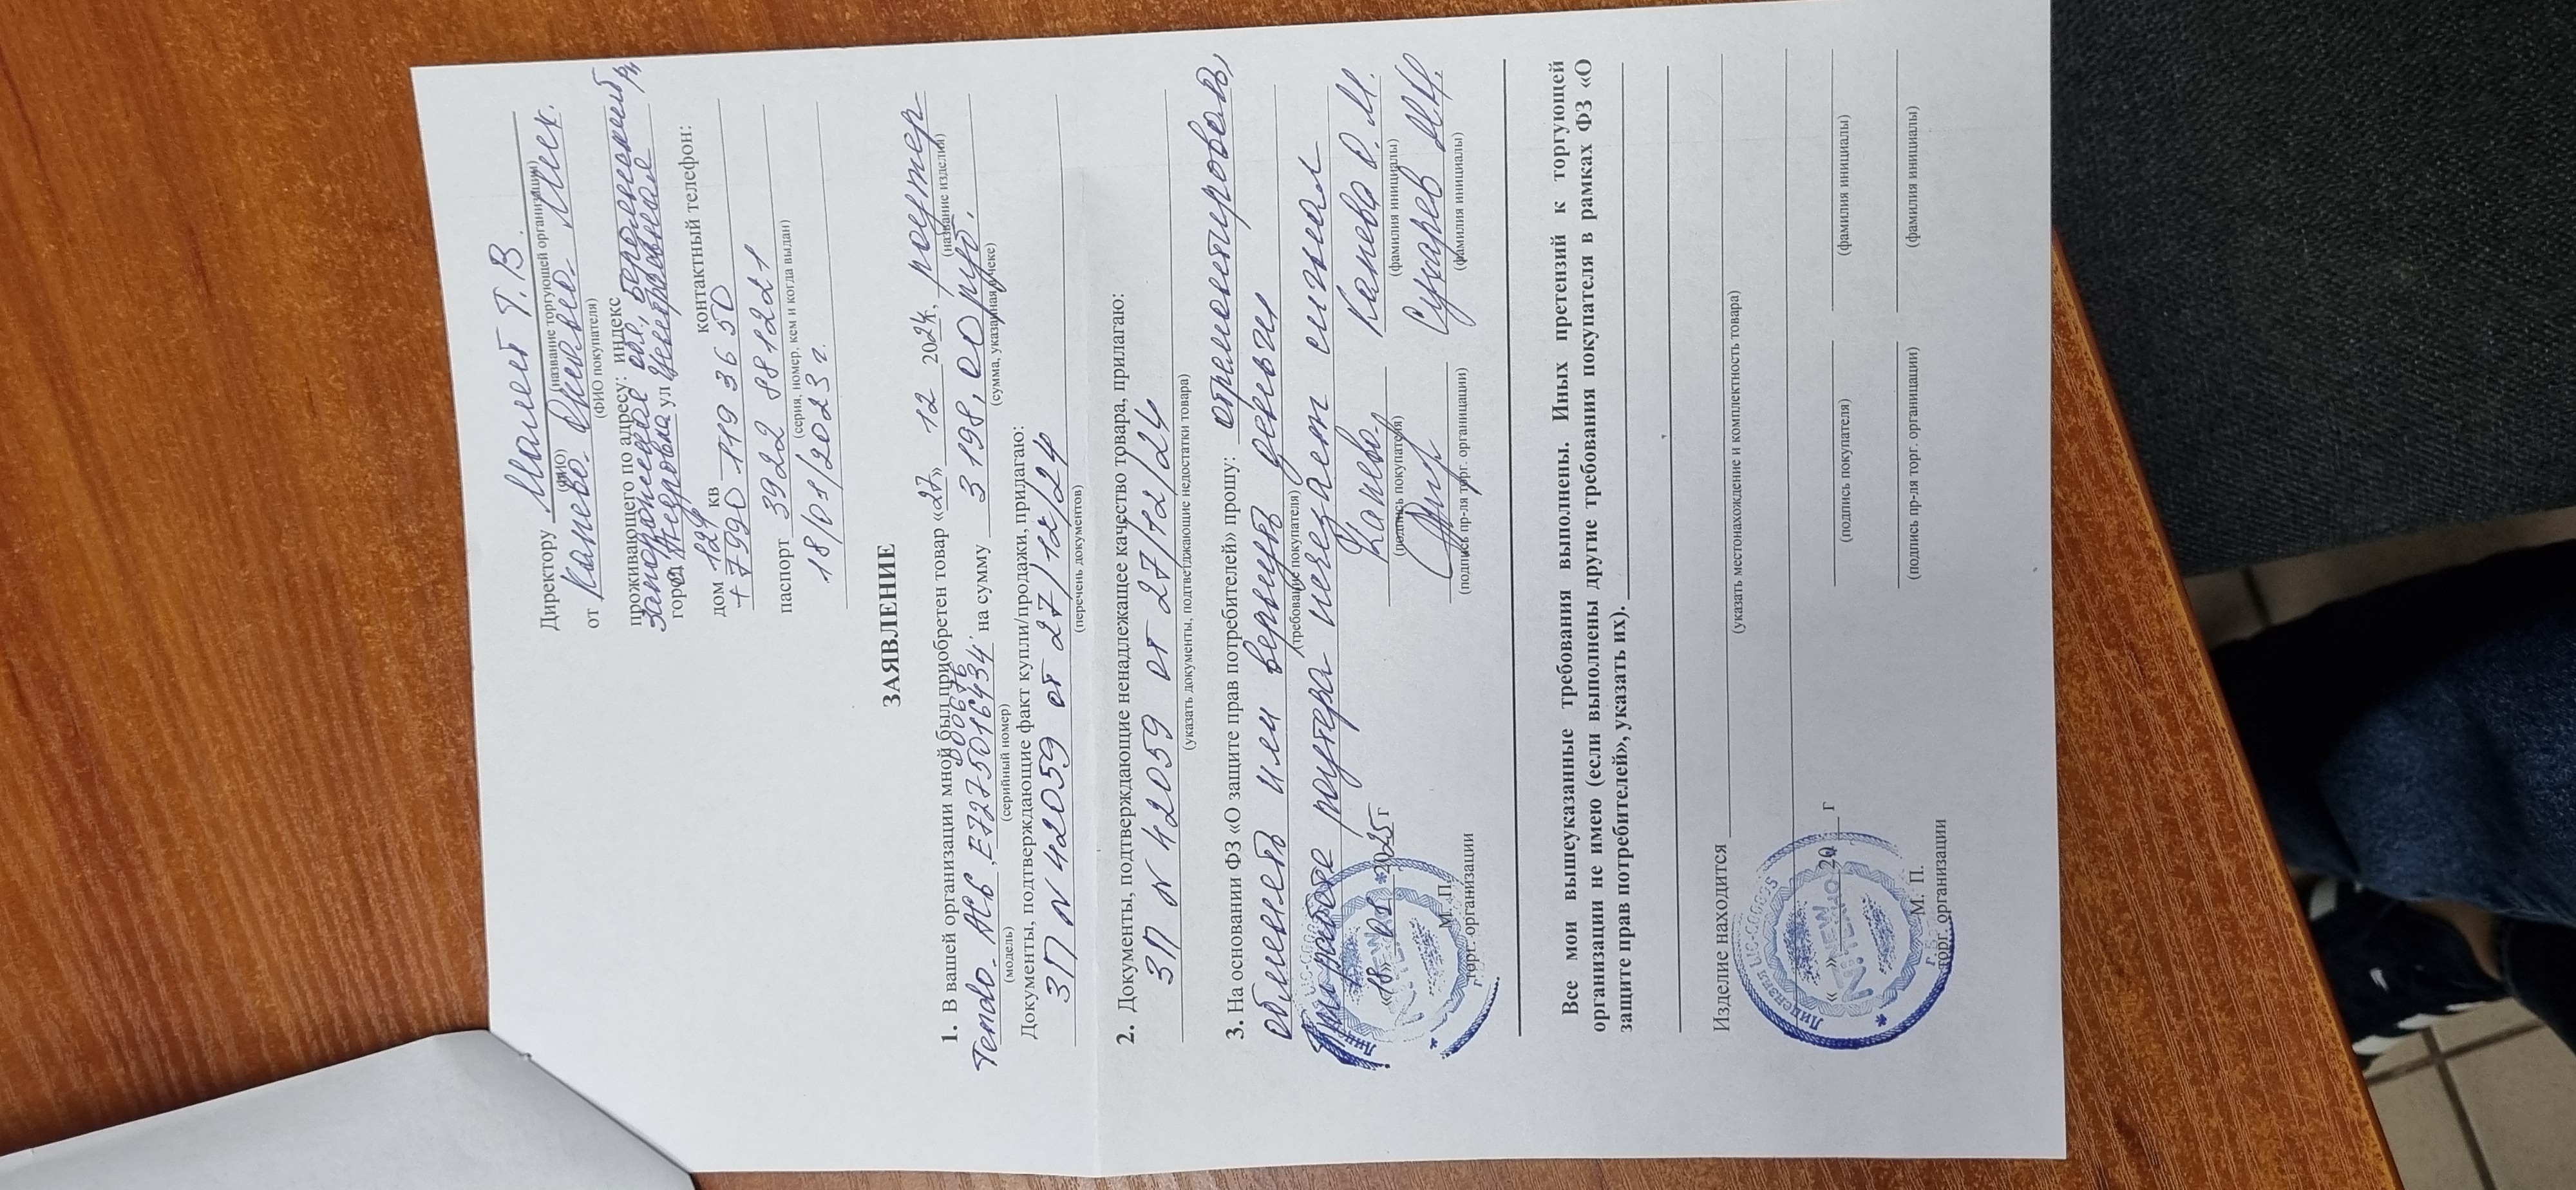 Директору Малеев Т.В.
(ФИО) (название торгующей организации)
от Канева
(ФИО покупателя)
проживающего по адресу: индекс
Запорожская обл., р-н
город ул Центральная
дом 129 кв контактный телефон:
+7990 119 36 50
паспорт 3922 881221
(серия, номер, кем и когда выдан)
18/01/2023 г.
ЗАЯВЛЕНИЕ
1. В вашей организации мной был приобретен товар «27» 12 2024, роутер
(название изделия)
Tenda AC6, E7275016434 на сумму 3 198,00 руб.
(модель) (серийный номер) (сумма, указанная в чеке)
Документы, подтверждающие факт купли/продажи, прилагаю:
ЗП N 42059 от 27/12/24
(перечень документов)
2. Документы, подтверждающие ненадлежащее качество товара, прилагаю:
ЗП N 42059 от 27/12/24
(указать документы, подтверждающие недостатки товара)
3. На основании ФЗ «О защите прав потребителей» прошу: отремонтировать,
обменять или вернуть деньги
(требование покупателя)
При работе роутера исчезает сигнал
«18» 01 2025 г Канева Канева О.М.
(подпись покупателя) (фамилия инициалы)
М. П. Сухарев
торг. организации (подпись пр-ля торг. организации) (фамилия инициалы)
Все мои вышеуказанные требования выполнены. Иных претензий к торгующей
организации не имею (если выполнены другие требования покупателя в рамках ФЗ «О
защите прав потребителей», указать их).
Изделие находится
(указать местонахождение и комплектность товара)
« » 20 г
(подпись покупателя) (фамилия инициалы)
М. П.
торг. организации (подпись пр-ля торг. организации) (фамилия инициалы)